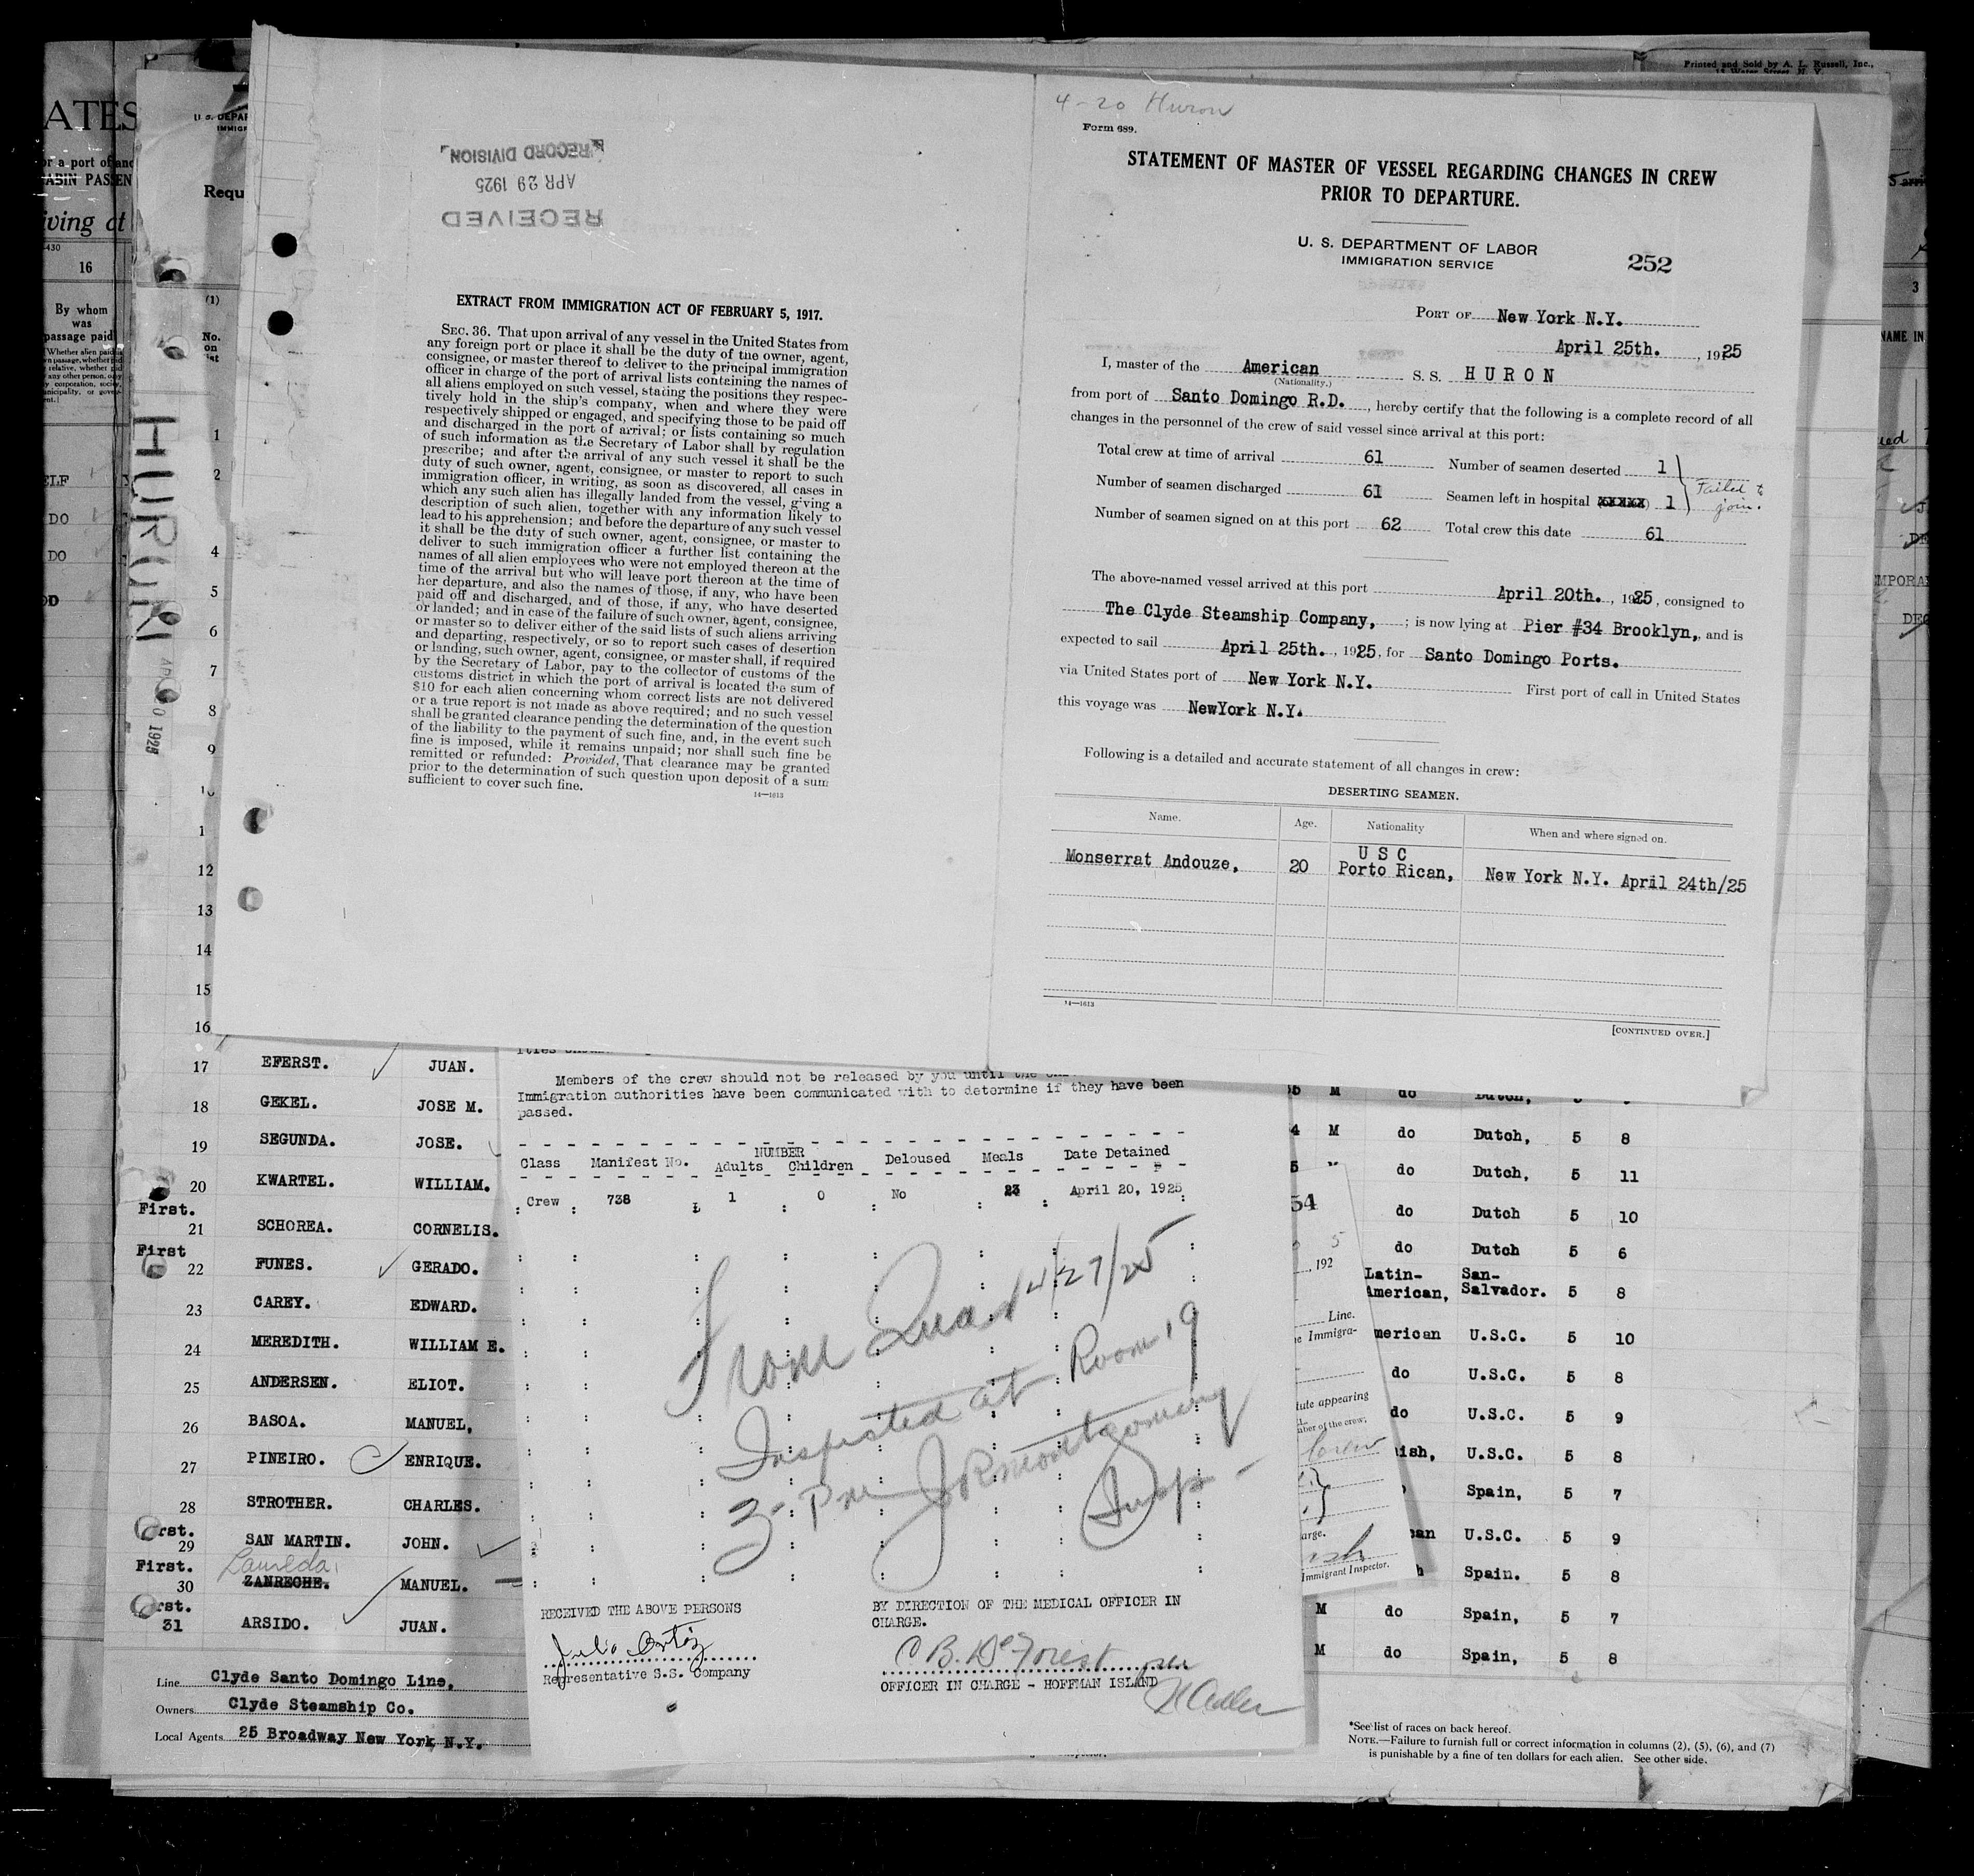 4-20 Huron
Form 689.
STATEMENT OF MASTER OF VESSEL REGARDING CHANGES IN CREW
PRIOR TO DEPARTURE.
U. S. DEPARTMENT OF LABOR
IMMIGRATION SERVICE
252
PORT OF New York N.Y.
April 25th. , 1925
I, master of the American S. S. HURON
(Nationality.)
from port of Santo Domingo R.D. , hereby certify that the following is a complete record of all
changes in the personnel of the crew of said vessel since arrival at this port:
Total crew at time of arrival 61 Number of seamen deserted 1
Number of seamen discharged 61 Seamen left in hospital 1 Failed to
join.
Number of seamen signed on at this port 62 Total crew this date 61
The above-named vessel arrived at this port April 20th. , 1925 , consigned to
The Clyde Steamship Company, ; is now lying at Pier #34 Brooklyn, and is
expected to sail April 25th. , 1925, for Santo Domingo Ports.
via United States port of New York N.Y. First port of call in United States
this voyage was NewYork N.Y.
Following is a detailed and accurate statement of all changes in crew:
DESERTING SEAMEN.
Name. Age. Nationality When and where signed on.
U S C
Monserrat Andouze, 20 Porto Rican, New York N.Y. April 24th/25
14—1613
[CONTINUED OVER.]
RECEIVED
APR 29 1925
RECORD DIVISION
EXTRACT FROM IMMIGRATION ACT OF FEBRUARY 5, 1917.
SEC. 36. That upon arrival of any vessel in the United States from
any foreign port or place it shall be the duty of the owner, agent,
consignee, or master thereof to deliver to the principal immigration
officer in charge of the port of arrival lists containing the names of
all aliens employed on such vessel, stating the positions they respec-
tively hold in the ship's company, when and where they were
respectively shipped or engaged, and specifying those to be paid off
and discharged in the port of arrival; or lists containing so much
of such information as the Secretary of Labor shall by regulation
prescribe; and after the arrival of any such vessel it shall be the
duty of such owner, agent, consignee, or master to report to such
immigration officer, in writing, as soon as discovered, all cases in
which any such alien has illegally landed from the vessel, giving a
description of such alien, together with any information likely to
lead to his apprehension; and before the departure of any such vessel
it shall be the duty of such owner, agent, consignee, or master to
deliver to such immigration officer a further list containing the
names of all alien employees who were not employed thereon at the
time of the arrival but who will leave port thereon at the time of
her departure, and also the names of those, if any, who have been
paid off and discharged, and of those, if any, who have deserted
or landed; and in case of the failure of such owner, agent, consignee,
or master so to deliver either of the said lists of such aliens arriving
and departing, respectively, or so to report such cases of desertion
or landing, such owner, agent, consignee, or master shall, if required
by the Secretary of Labor, pay to the collector of customs of the
customs district in which the port of arrival is located the sum of
$10 for each alien concerning whom correct lists are not delivered
or a true report is not made as above required; and no such vessel
shall be granted clearance pending the determination of the question
of the liability to the payment of such fine, and, in the event such
fine is imposed, while it remains unpaid; nor shall such fine be
remitted or refunded: Provided, That clearance may be granted
prior to the determination of such question upon deposit of a sum
sufficient to cover such fine.
14—1613
Printed and Sold by A. L. Russell, Inc.,
ATES
or a port of
iving at
16
By whom
was
passage paid
HURON
Requ
(1)
No.
on
1
2
4
5
6
7
8
9
1
12
13
14
15
16
17 EFERST. JUAN.
18 GEKEL. JOSE M.
19 SEGUNDA. JOSE.
20 KWARTEL. WILLIAM.
First.
21 SCHOREA. CORNELIS.
First
22 FUNES. GERADO.
23 CAREY. EDWARD.
24 MEREDITH. WILLIAM E.
25 ANDERSEN. ELIOT.
26 BASOA. MANUEL,
27 PINEIRO. ENRIQUE.
28 STROTHER. CHARLES.
29 SAN MARTIN. JOHN.
First.
30 ZANRECHE. MANUEL.
31 ARSIDO. JUAN.
Line Clyde Santo Domingo Line,
Owners Clyde Steamship Co.
Local Agents 25 Broadway New York N.Y.
Members of the crew should not be released by you until the
Immigration authorities have been communicated with to determine if they have been
passed.
NUMBER
Class Manifest No. Adults Children Deloused Meals Date Detained
Crew 738 1 0 No 23 April 20, 1925
4/27/25
Inspected at Room 19
3- PM JRMontgomery
Insp-
RECEIVED THE ABOVE PERSONS
Julio Ortiz
Representative S.S. Company
BY DIRECTION OF THE MEDICAL OFFICER IN
CHARGE.
C B. DeForest per
OFFICER IN CHARGE - HOFFMAN ISLAND
54
192
Line.
Immigra-
appearing
Crew
Immigrant Inspector.
M do Dutch,
4 M do Dutch, 5 8
5 do Dutch, 5 11
do Dutch 5 10
do Dutch 5 6
Latin- San-
American, Salvador. 5 8
merican U.S.C. 5 10
do U.S.C. 5 8
do U.S.C. 5 9
ish, U.S.C. 5 8
Spain, 5 7
U.S.C. 5 9
Spain. 5 8
M do Spain, 5 7
M do Spain, 5 8
*See list of races on back hereof.
NOTE.—Failure to furnish full or correct information in columns (2), (5), (6), and (7)
is punishable by a fine of ten dollars for each alien. See other side.